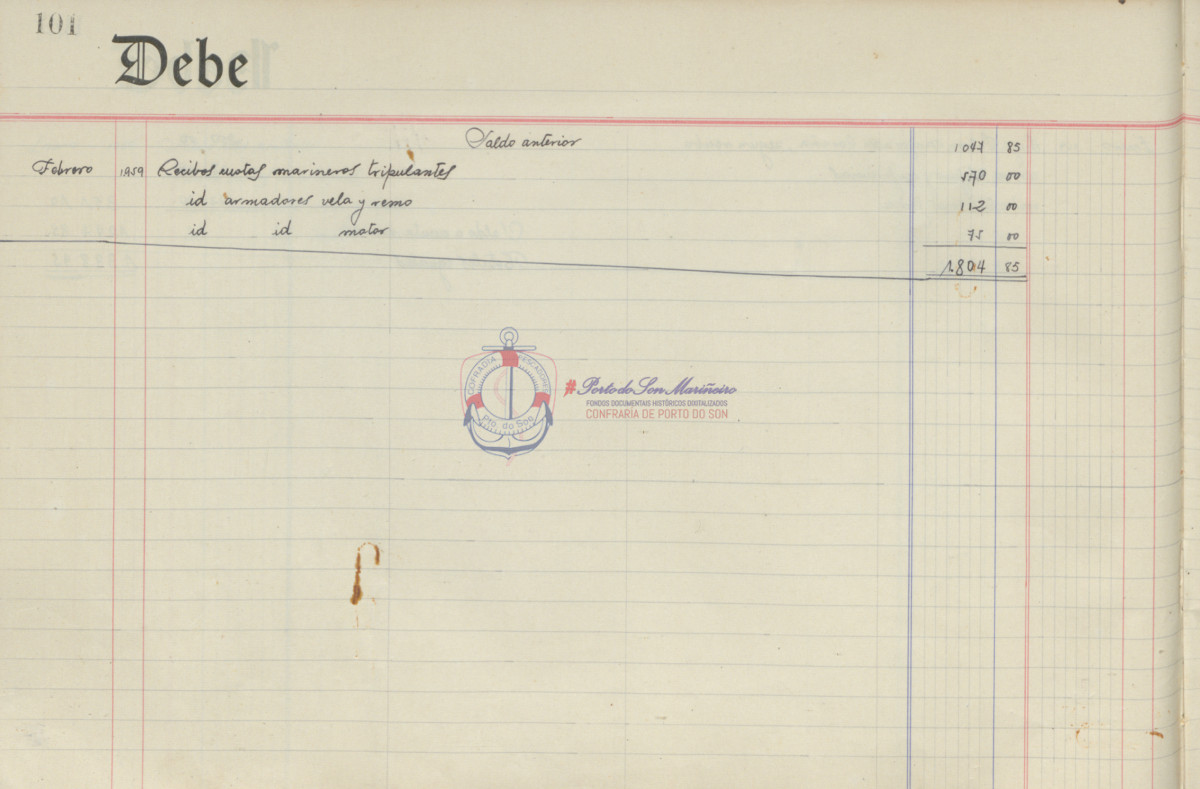 101
Debe
Saldo anterior 1047 85
Febrero 1959 Recibos cuotas marineros tripulantes 570 00
id armadores vela y remo 112 00
id id motor 75 00
1.804 85
COFRADIA PESCADORES
Pto. do Son
#Porto do Son Mariñeiro
FONDOS DOCUMENTAIS HISTÓRICOS DIXITALIZADOS
CONFRARÍA DE PORTO DO SON